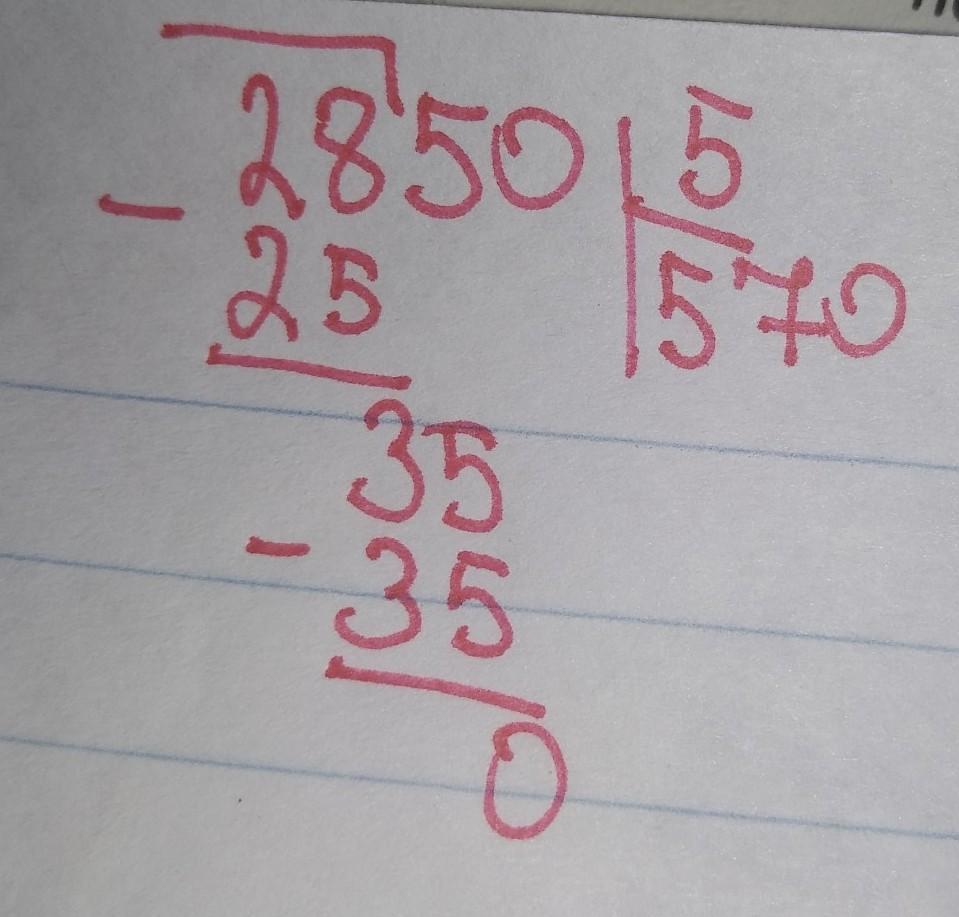 2850 5
- 25 570
35
- 35
0